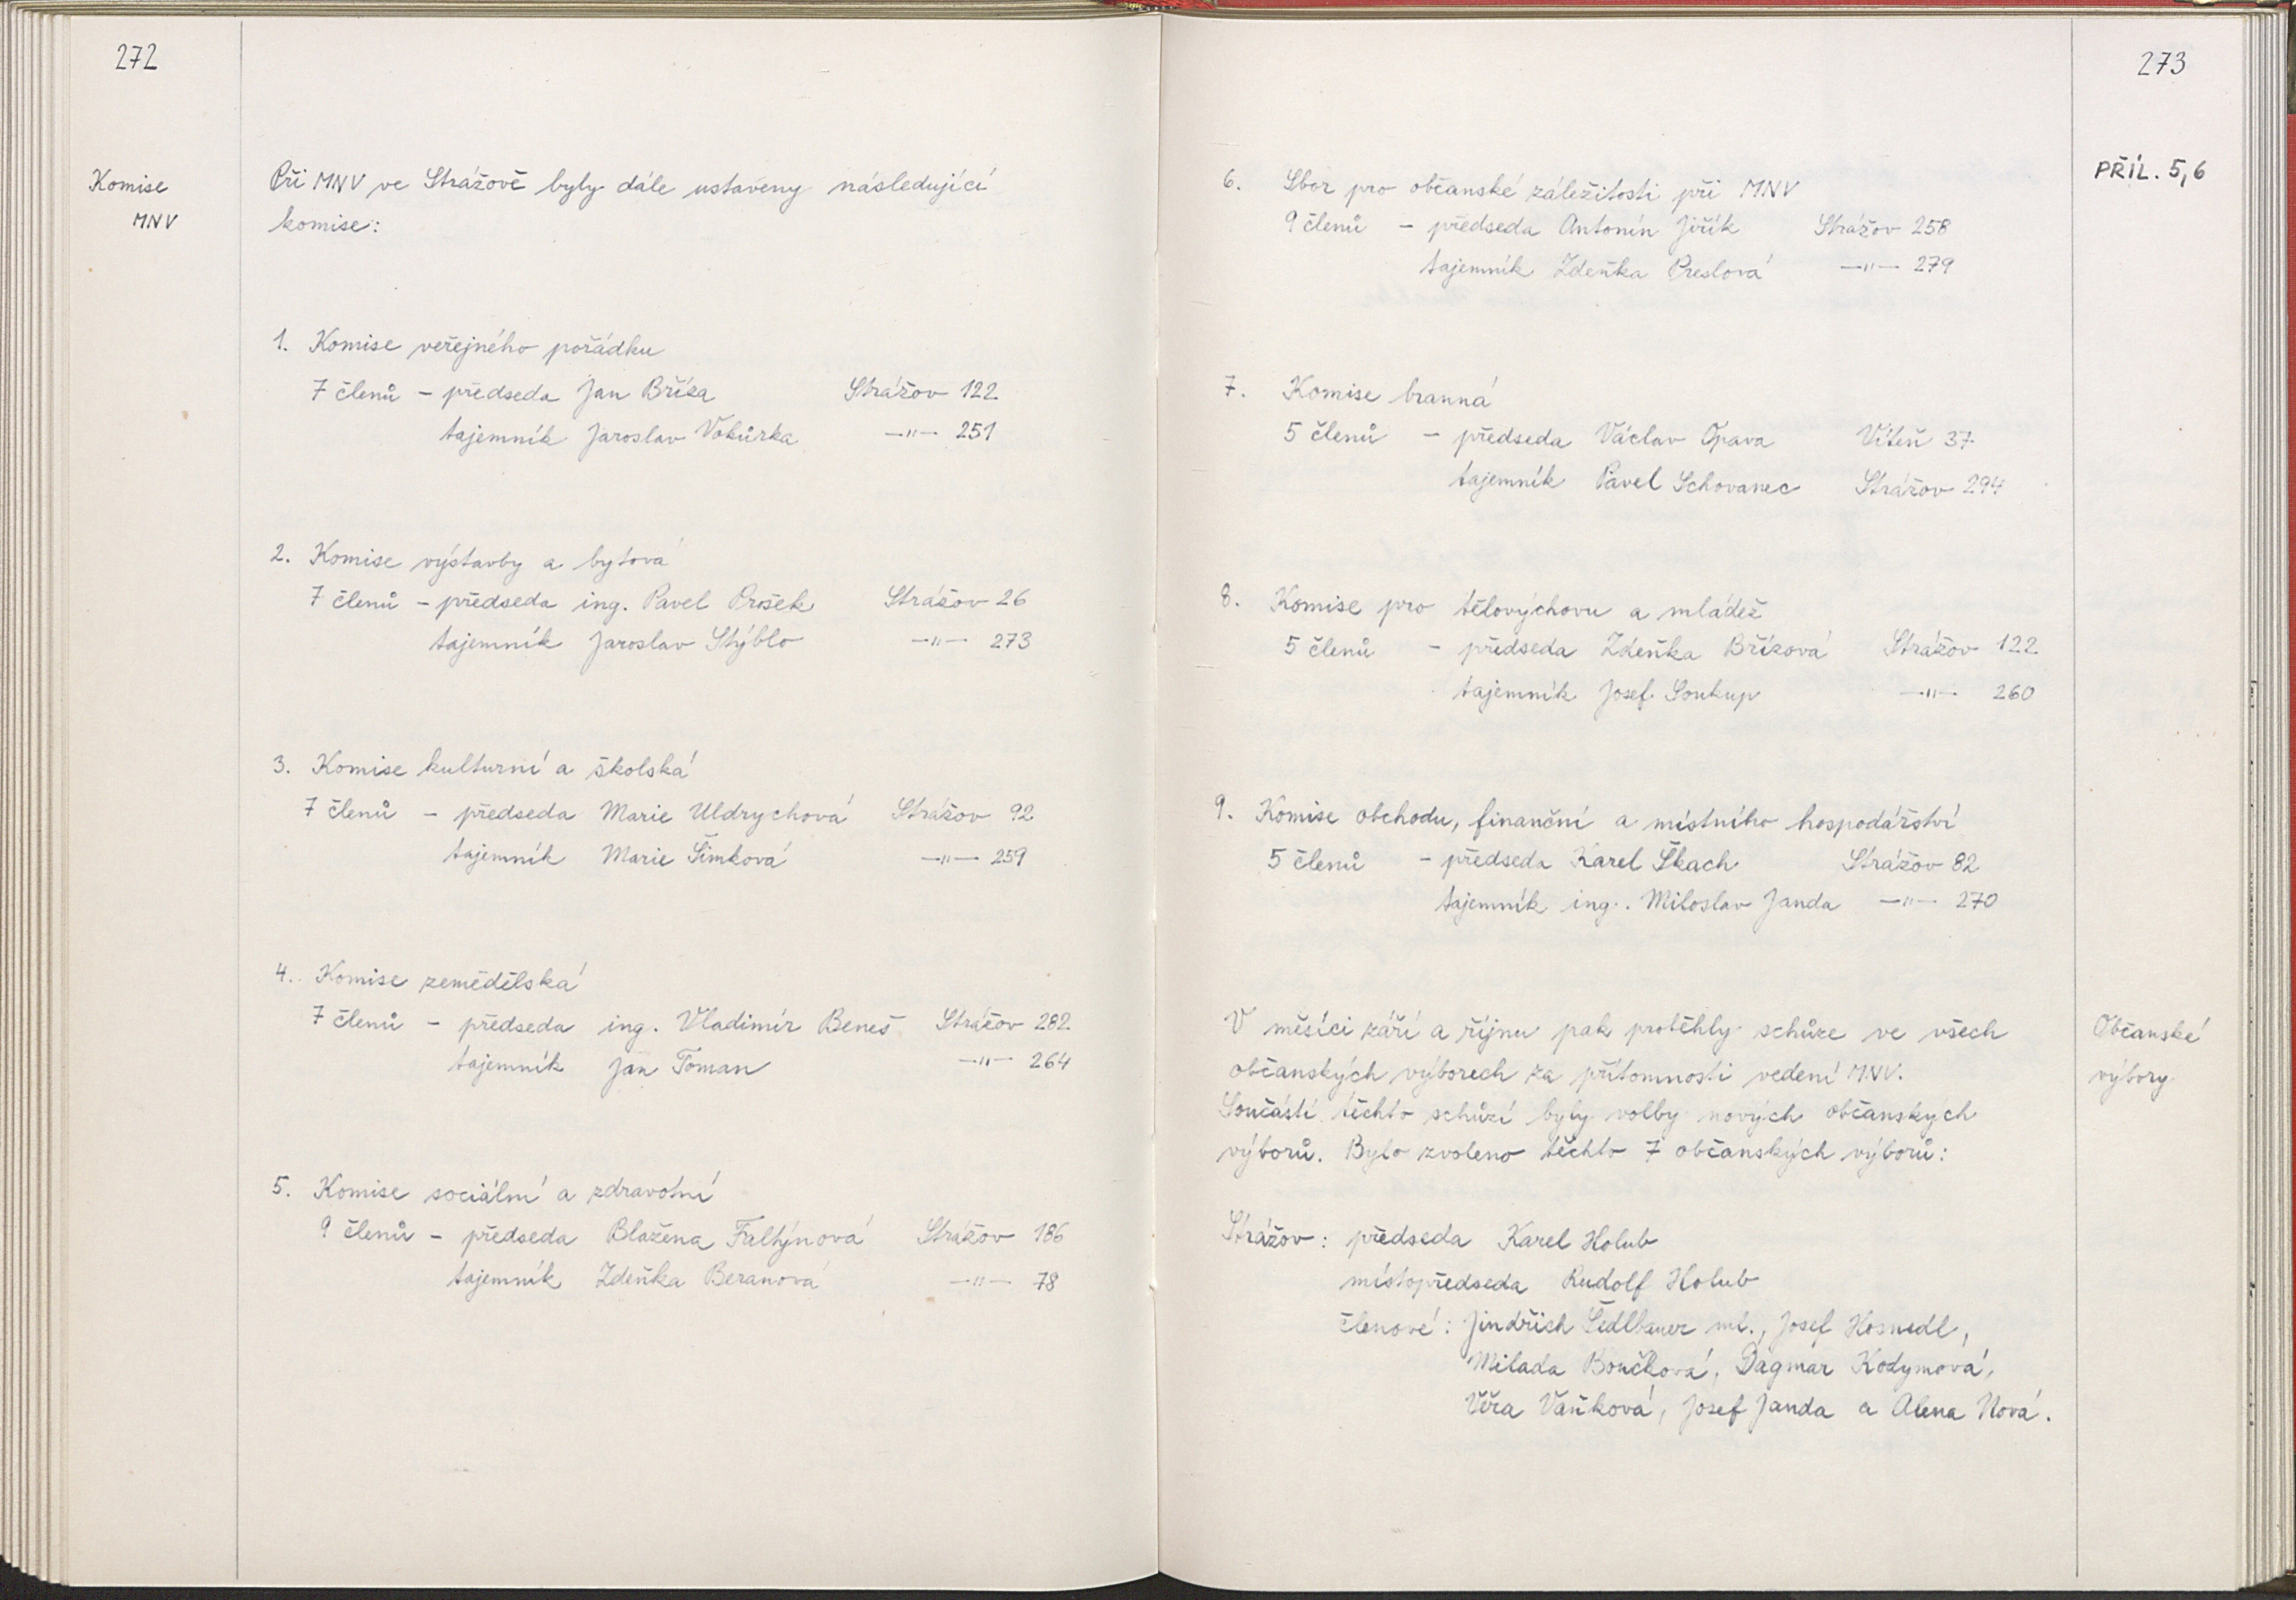 272
Komise
MNV
Při MNV ve Strážově byly dále ustaveny následující
komise:
1. Komise veřejného pořádku
7 členů – předseda Jan Bříza Strážov 122
tajemník Jaroslav Vokůrka —"— 251
2. Komise výstavby a bytová
7 členů – předseda ing. Pavel Prošek Strážov 26
tajemník Jaroslav Stýblo —"— 273
3. Komise kulturní a školská
7 členů – předseda Marie Uldrychová Strážov 92
tajemník Marie Šimková —"— 259
4. Komise zemědělská
7 členů – předseda ing. Vladimír Beneš Strážov 282
tajemník Jan Toman —"— 264
5. Komise sociální a zdravotní
9 členů – předseda Blažena Faltýnová Strážov 186
tajemník Zdeňka Beranová —"— 78
273
PŘÍL. 5,6
6. Sbor pro občanské záležitosti při MNV
9 členů – předseda Antonín Jiřík Strážov 258
tajemník Zdeňka Preslová —"— 279
7. Komise branná
5 členů – předseda Václav Opava Víteň 37
tajemník Pavel Schovanec Strážov 294
8. Komise pro tělovýchovu a mládež
5 členů – předseda Zdeňka Břízová Strážov 122
tajemník Josef Soukup —"— 260
9. Komise obchodu, finanční a místního hospodářství
5 členů – předseda Karel Škach Strážov 82
tajemník ing. Miloslav Janda —"— 270
V měsíci září a říjnu pak protěhly schůze ve všech
občanských výborech za přítomnosti vedení MNV.
Součástí těchto schůzí byly volby nových občanských
výborů. Bylo zvoleno těchto 7 občanských výborů:
Občanské
výbory
Strážov: předseda Karel Holub
místopředseda Rudolf Holub
členové: Jindřich Sedlbauer ml., Josef Hosnedl,
Milada Boučková, Dagmar Kodymová,
Věra Vaňková, Josef Janda a Alena Nová.